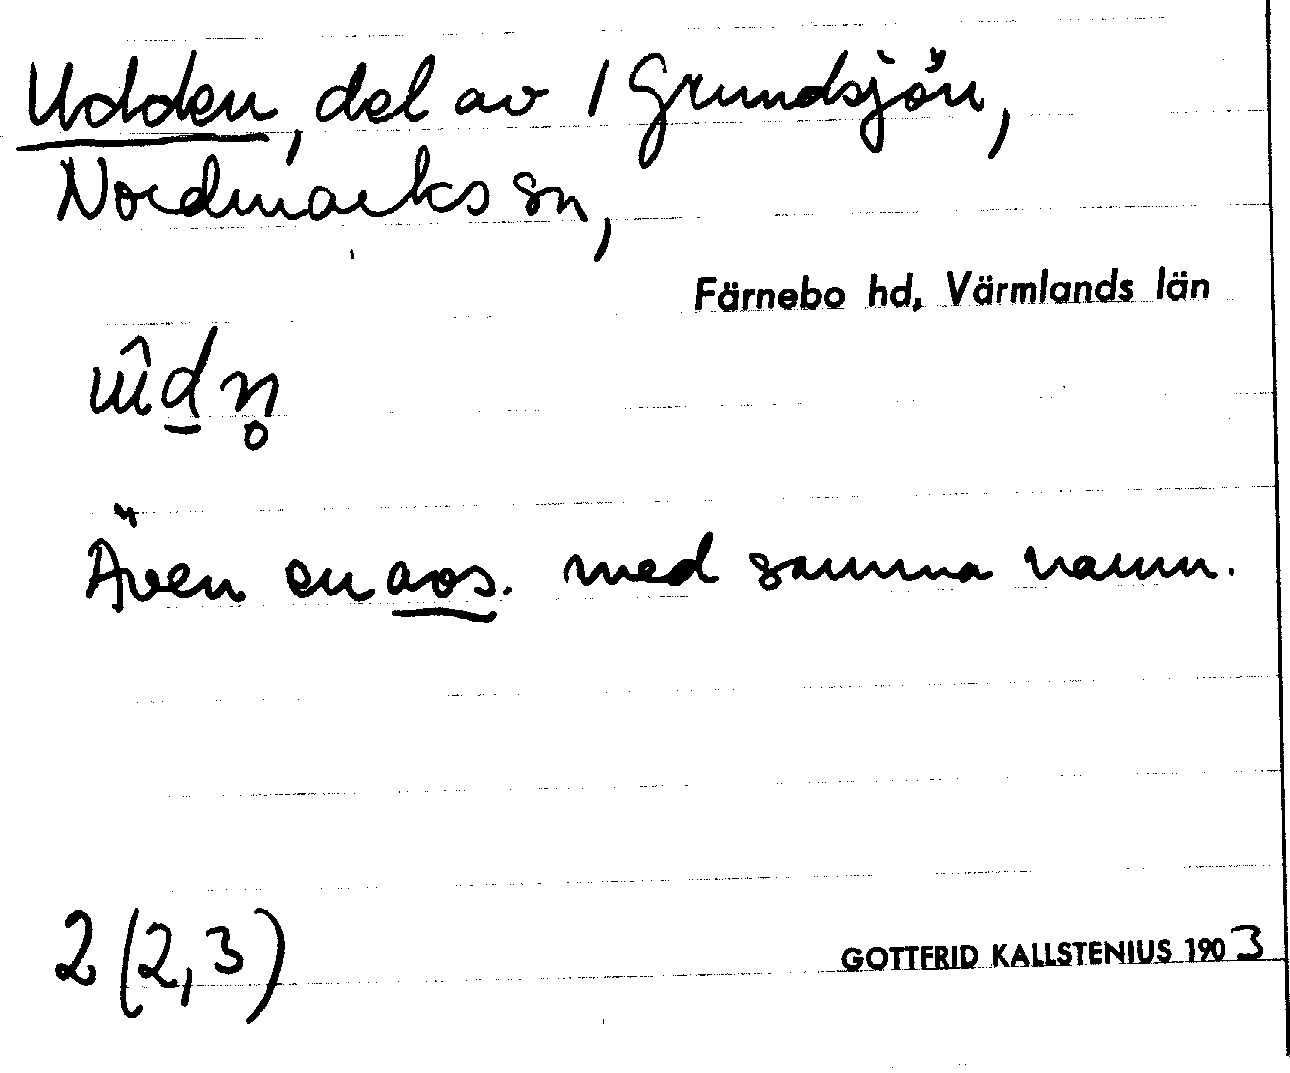 Udden, del av 1 Grundsjön,
Nordmarks sn,
Färnebo hd, Värmlands län
Även en avs. med samma namn.
2 (2,3)
GOTTFRID KALLSTENIUS 1903